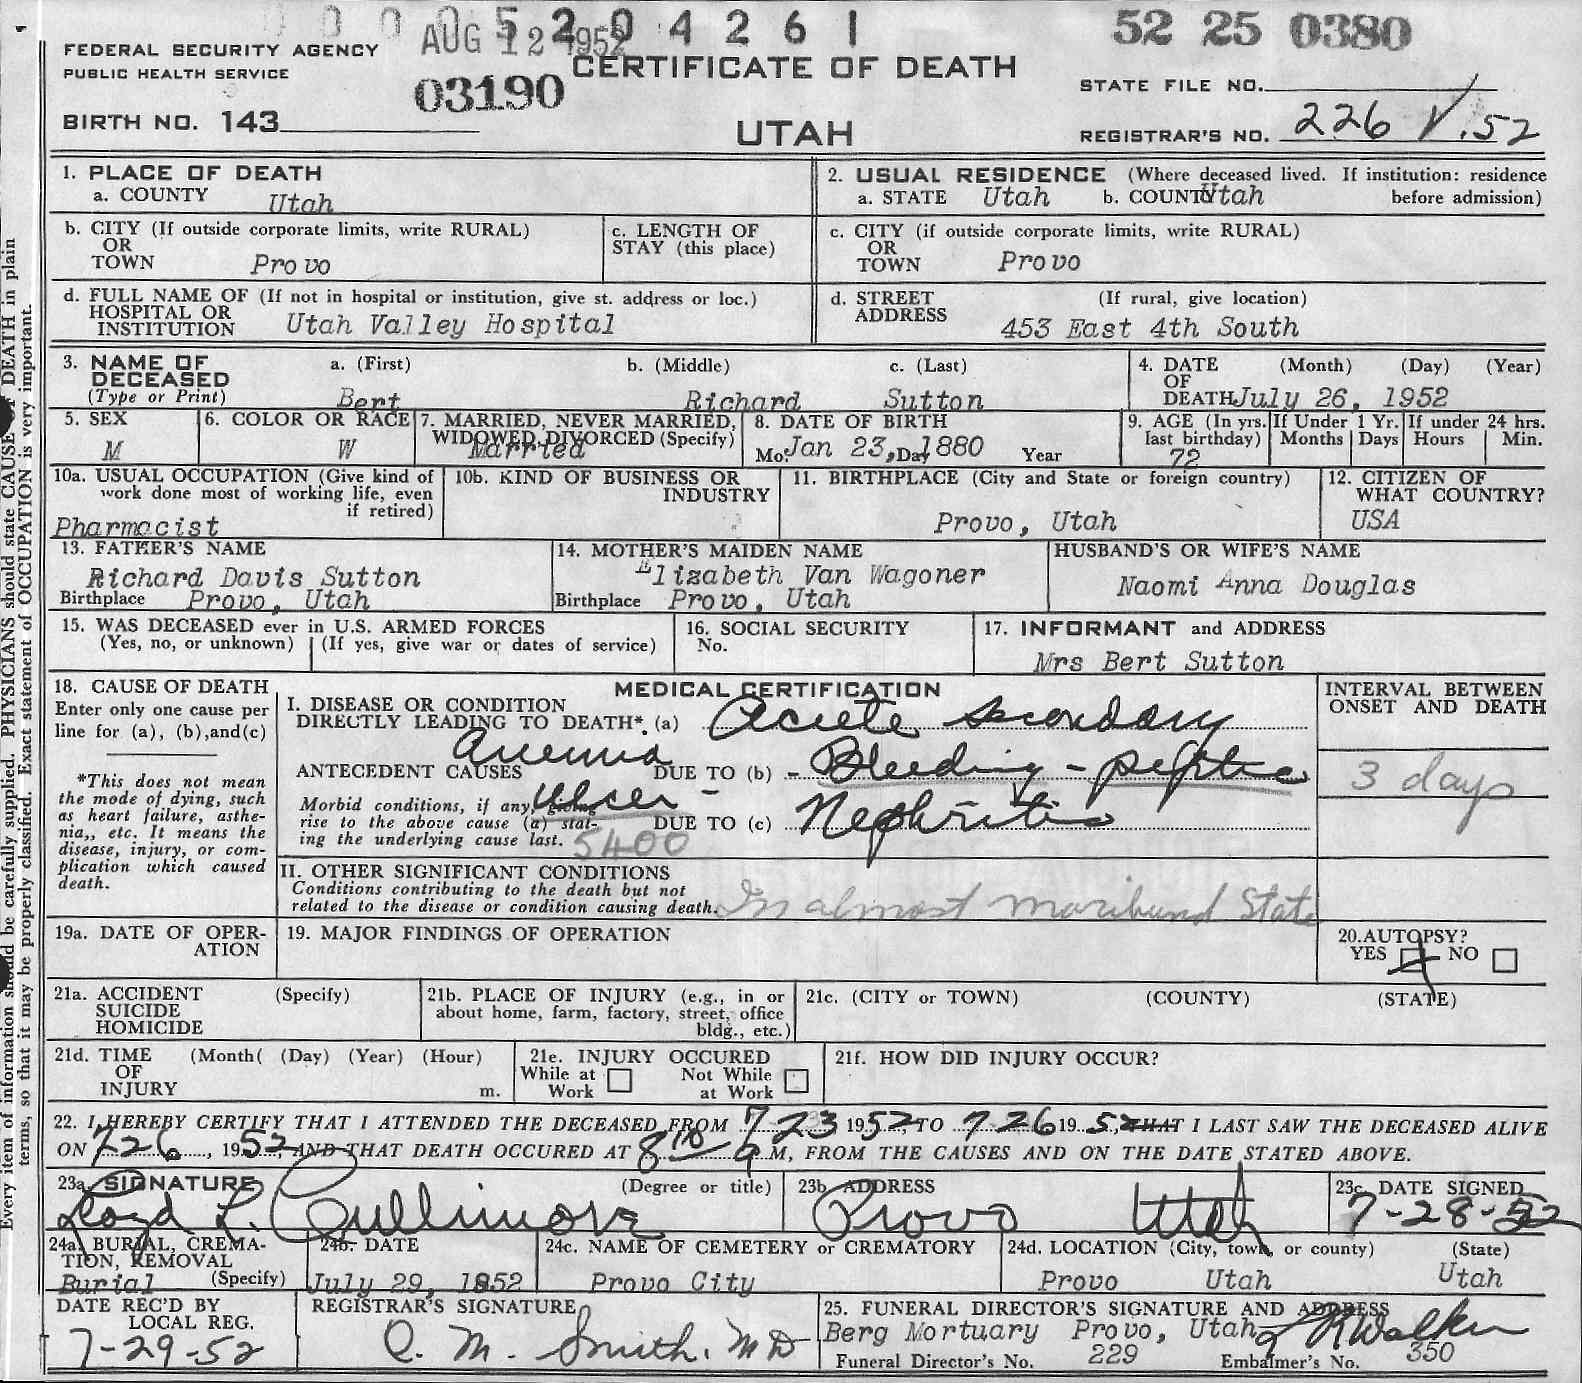 000 5204261
AUG 12 1952
52 25 0380
FEDERAL SECURITY AGENCY
PUBLIC HEALTH SERVICE
03190
CERTIFICATE OF DEATH
STATE FILE NO.
BIRTH NO. 143
UTAH
REGISTRAR'S NO. 226 V.52
1. PLACE OF DEATH
a. COUNTY Utah
2. USUAL RESIDENCE (Where deceased lived. If institution: residence
a. STATE Utah b. COUNTY Utah before admission)
b. CITY (If outside corporate limits, write RURAL)
OR
TOWN Provo
c. LENGTH OF
STAY (this place)
c. CITY (if outside corporate limits, write RURAL)
OR
TOWN Provo
d. FULL NAME OF (If not in hospital or institution, give st. address or loc.)
HOSPITAL OR
INSTITUTION Utah Valley Hospital
d. STREET (If rural, give location)
ADDRESS 453 East 4th South
3. NAME OF a. (First) b. (Middle) c. (Last)
DECEASED
(Type or Print) Bert Richard Sutton
4. DATE (Month) (Day) (Year)
OF
DEATH July 26, 1952
5. SEX
M
6. COLOR OR RACE
W
7. MARRIED, NEVER MARRIED,
WIDOWED, DIVORCED (Specify)
Married
8. DATE OF BIRTH
Mo. Jan 23, Da, 1880 Year
9. AGE (In yrs.
last birthday)
72
If Under 1 Yr.
Months Days
If under 24 hrs.
Hours Min.
10a. USUAL OCCUPATION (Give kind of
work done most of working life, even
if retired)
Pharmacist
10b. KIND OF BUSINESS OR
INDUSTRY
11. BIRTHPLACE (City and State or foreign country)
Provo, Utah
12. CITIZEN OF
WHAT COUNTRY?
USA
13. FATHER'S NAME
Richard Davis Sutton
Birthplace Provo, Utah
14. MOTHER'S MAIDEN NAME
Elizabeth Van Wagoner
Birthplace Provo, Utah
HUSBAND'S OR WIFE'S NAME
Naomi Anna Douglas
15. WAS DECEASED ever in U.S. ARMED FORCES
(Yes, no, or unknown) (If yes, give war or dates of service)
16. SOCIAL SECURITY
No.
17. INFORMANT and ADDRESS
Mrs Bert Sutton
18. CAUSE OF DEATH
Enter only one cause per
line for (a), (b),and(c)
*This does not mean
the mode of dying, such
as heart failure, asthe-
nia,, etc. It means the
disease, injury, or com-
plication which caused
death.
MEDICAL CERTIFICATION
I. DISEASE OR CONDITION
DIRECTLY LEADING TO DEATH*. (a) Acute secondary
anemia
ANTECEDENT CAUSES DUE TO (b) - Bleeding - peptic
Morbid conditions, if any, giving Ulcer -
rise to the above cause (a) stat- DUE TO (c) Nephritis
ing the underlying cause last. 5400
INTERVAL BETWEEN
ONSET AND DEATH
3 days
II. OTHER SIGNIFICANT CONDITIONS
Conditions contributing to the death but not
related to the disease or condition causing death. In almost moribund State
19a. DATE OF OPER-
ATION
19. MAJOR FINDINGS OF OPERATION
20. AUTOPSY?
YES NO
21a. ACCIDENT (Specify)
SUICIDE
HOMICIDE
21b. PLACE OF INJURY (e.g., in or
about home, farm, factory, street, office
bldg., etc.)
21c. (CITY or TOWN) (COUNTY) (STATE)
21d. TIME (Month( (Day) (Year) (Hour)
OF
INJURY m.
21e. INJURY OCCURED
While at Not While
Work at Work
21f. HOW DID INJURY OCCUR?
22. I HEREBY CERTIFY THAT I ATTENDED THE DECEASED FROM 7 23 1952, TO 7-26 1952, THAT I LAST SAW THE DECEASED ALIVE
ON 7 26, 1952, AND THAT DEATH OCCURED AT 8 10 P M, FROM THE CAUSES AND ON THE DATE STATED ABOVE.
23a. SIGNATURE (Degree or title)
Lloyd L. Cullimore
23b ADDRESS
Provo Utah
23c. DATE SIGNED
7-28-52
24a. BURIAL, CREMA-
TION, REMOVAL
Burial (Specify)
24b. DATE
July 29, 1952
24c. NAME OF CEMETERY or CREMATORY
Provo City
24d. LOCATION (City, town, or county) (State)
Provo Utah Utah
DATE REC'D BY
LOCAL REG.
7-29-52
REGISTRAR'S SIGNATURE
O. M. Smith, MD
25. FUNERAL DIRECTOR'S SIGNATURE AND ADDRESS
Berg Mortuary Provo, Utah Walker
Funeral Director's No. 229 Embalmer's No. 350
Every item of information should be carefully supplied. PHYSICIANS should state CAUSE OF DEATH in plain
terms, so that it may be properly classified. Exact statement of OCCUPATION is very important.